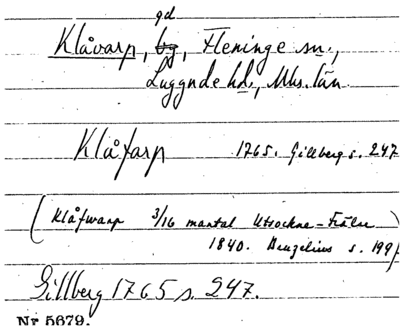 gd
Klåvarp, by, Fleninge sn.,
Luggude hd., Mhs. län
Klåfarp 1765. Gillberg s. 247
(Klåfwarp 3/16 mantal Utsockne-Frälse
1840. Benzelius s. 199)
Gillberg 1765 s. 247.
Nr 5679.